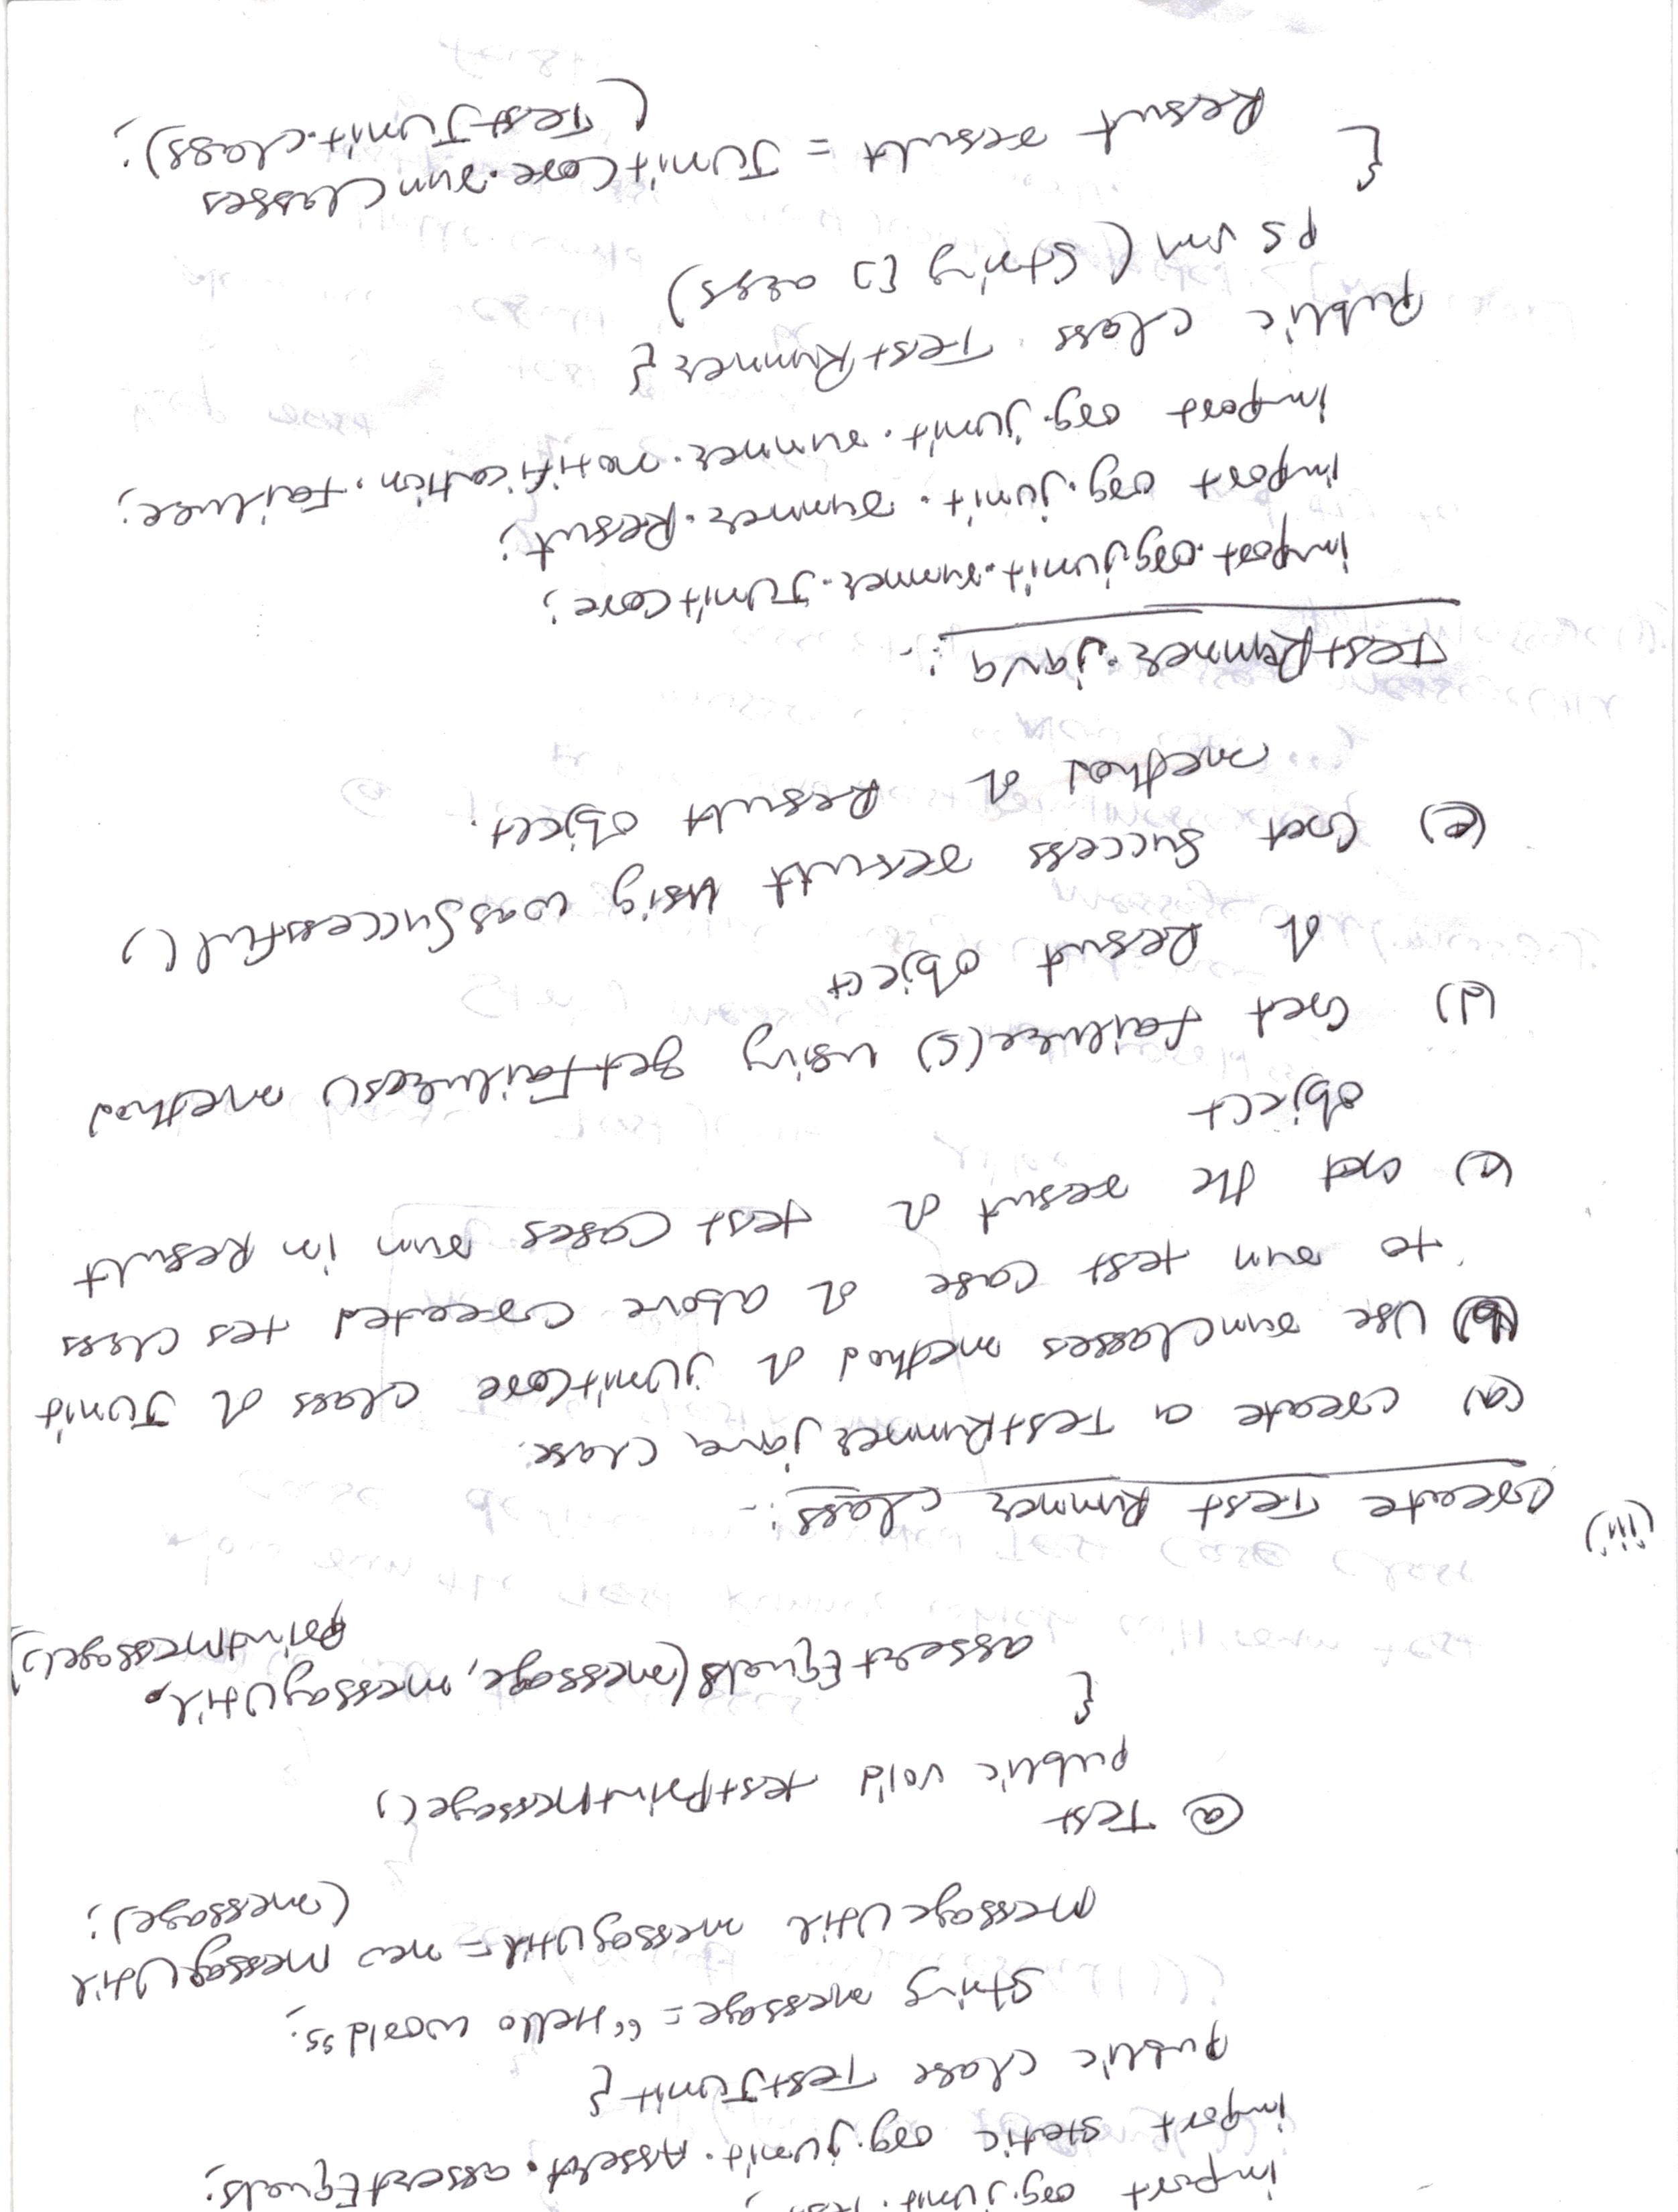 import org.junit.Test;
import static org.junit.Assert.assertEquals;
public class TestJunit {
String message = "Hello world";
MessageUtil messagUtil = new MessagUtil
(message);
@ Test
public void testPrintMessage()
{
assertEquals(message, messagUtil.
printMessage());
(iii) Create Test Runner Class:-
(a) create a TestRunner java class.
(b) Use runclasses method of jUnitCore class of Junit
to run test case of above created tes class
(c) Get the result of test cases run in Result
object
(d) Get failure(s) using getFailures() method
of Result object
(e) Get Success result using wasSuccessful()
method of Result object.
TestRunner.java :-
import.org.junit.runner.JUnitCore;
import org.junit.runner.Result;
import org.junit.runner.notification.Failure;
Public class TestRunner {
ps vm (String [] args)
{
Result result = JunitCore.runClasses
(TestJunit.class);